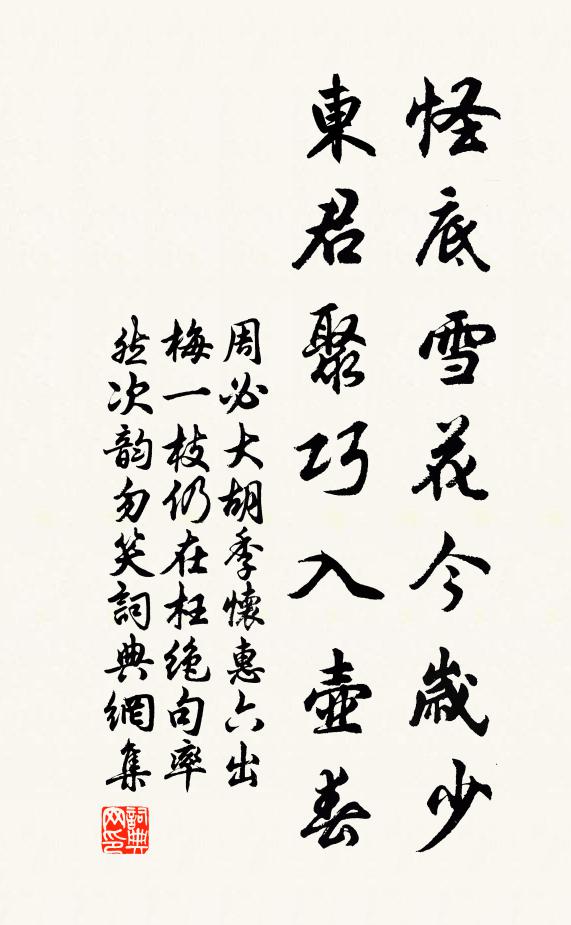 怪底雪花今歲少
東君聚巧入壺春
周必大胡季懷惠六出
梅一枝仍在枉絕句率
然次韵勿笑詞典網集
詞典网印